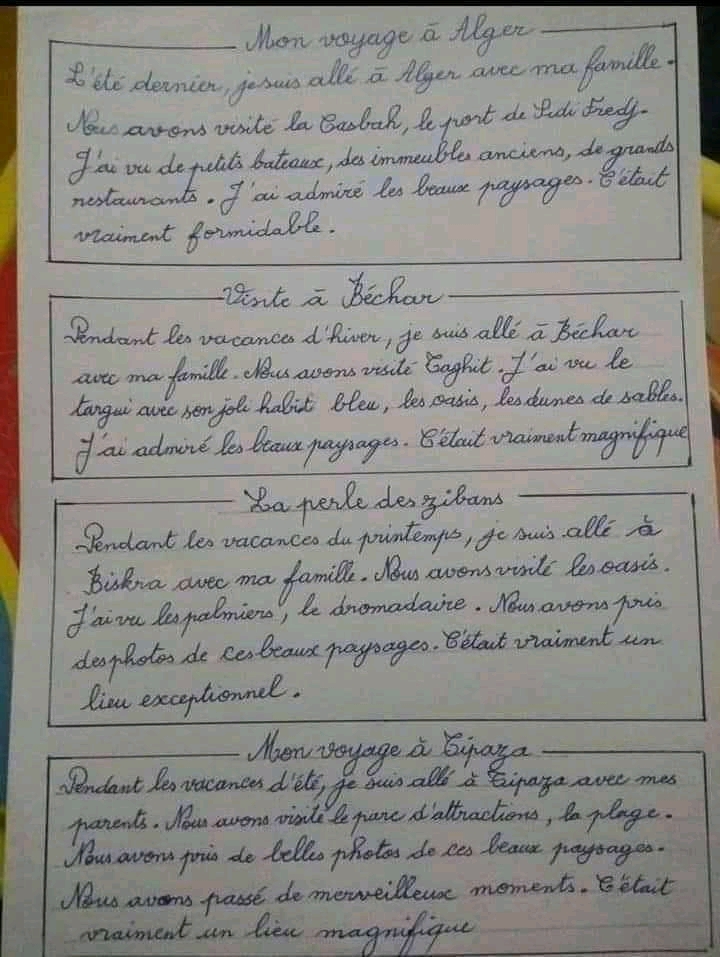 Mon voyage à Alger
L'été dernier, je suis allé à Alger avec ma famille.
Nous avons visité la Casbah, le port de Sidi Fredj.
J'ai vu de petits bateaux, des immeubles anciens, de grands
restaurants. J'ai admiré les beaux paysages. C'était
vraiment formidable.
Visite à Béchar
Pendant les vacances d'hiver, je suis allé à Béchar
avec ma famille. Nous avons visité Taghit. J'ai vu le
targui avec son joli habit bleu, les oasis, les dunes de sables.
J'ai admiré les beaux paysages. C'était vraiment magnifique
La perle des zibans
Pendant les vacances du printemps, je suis allé à
Biskra avec ma famille. Nous avons visité les oasis.
J'ai vu les palmiers, le dromadaire. Nous avons pris
des photos de ces beaux paysages. C'était vraiment un
lieu exceptionnel.
Mon voyage à Tipaza
Pendant les vacances d'été, je suis allé à Tipaza avec mes
parents. Nous avons visité le parc d'attractions, la plage.
Nous avons pris de belles photos de ces beaux paysages.
Nous avons passé de merveilleux moments. C'était
vraiment un lieu magnifique